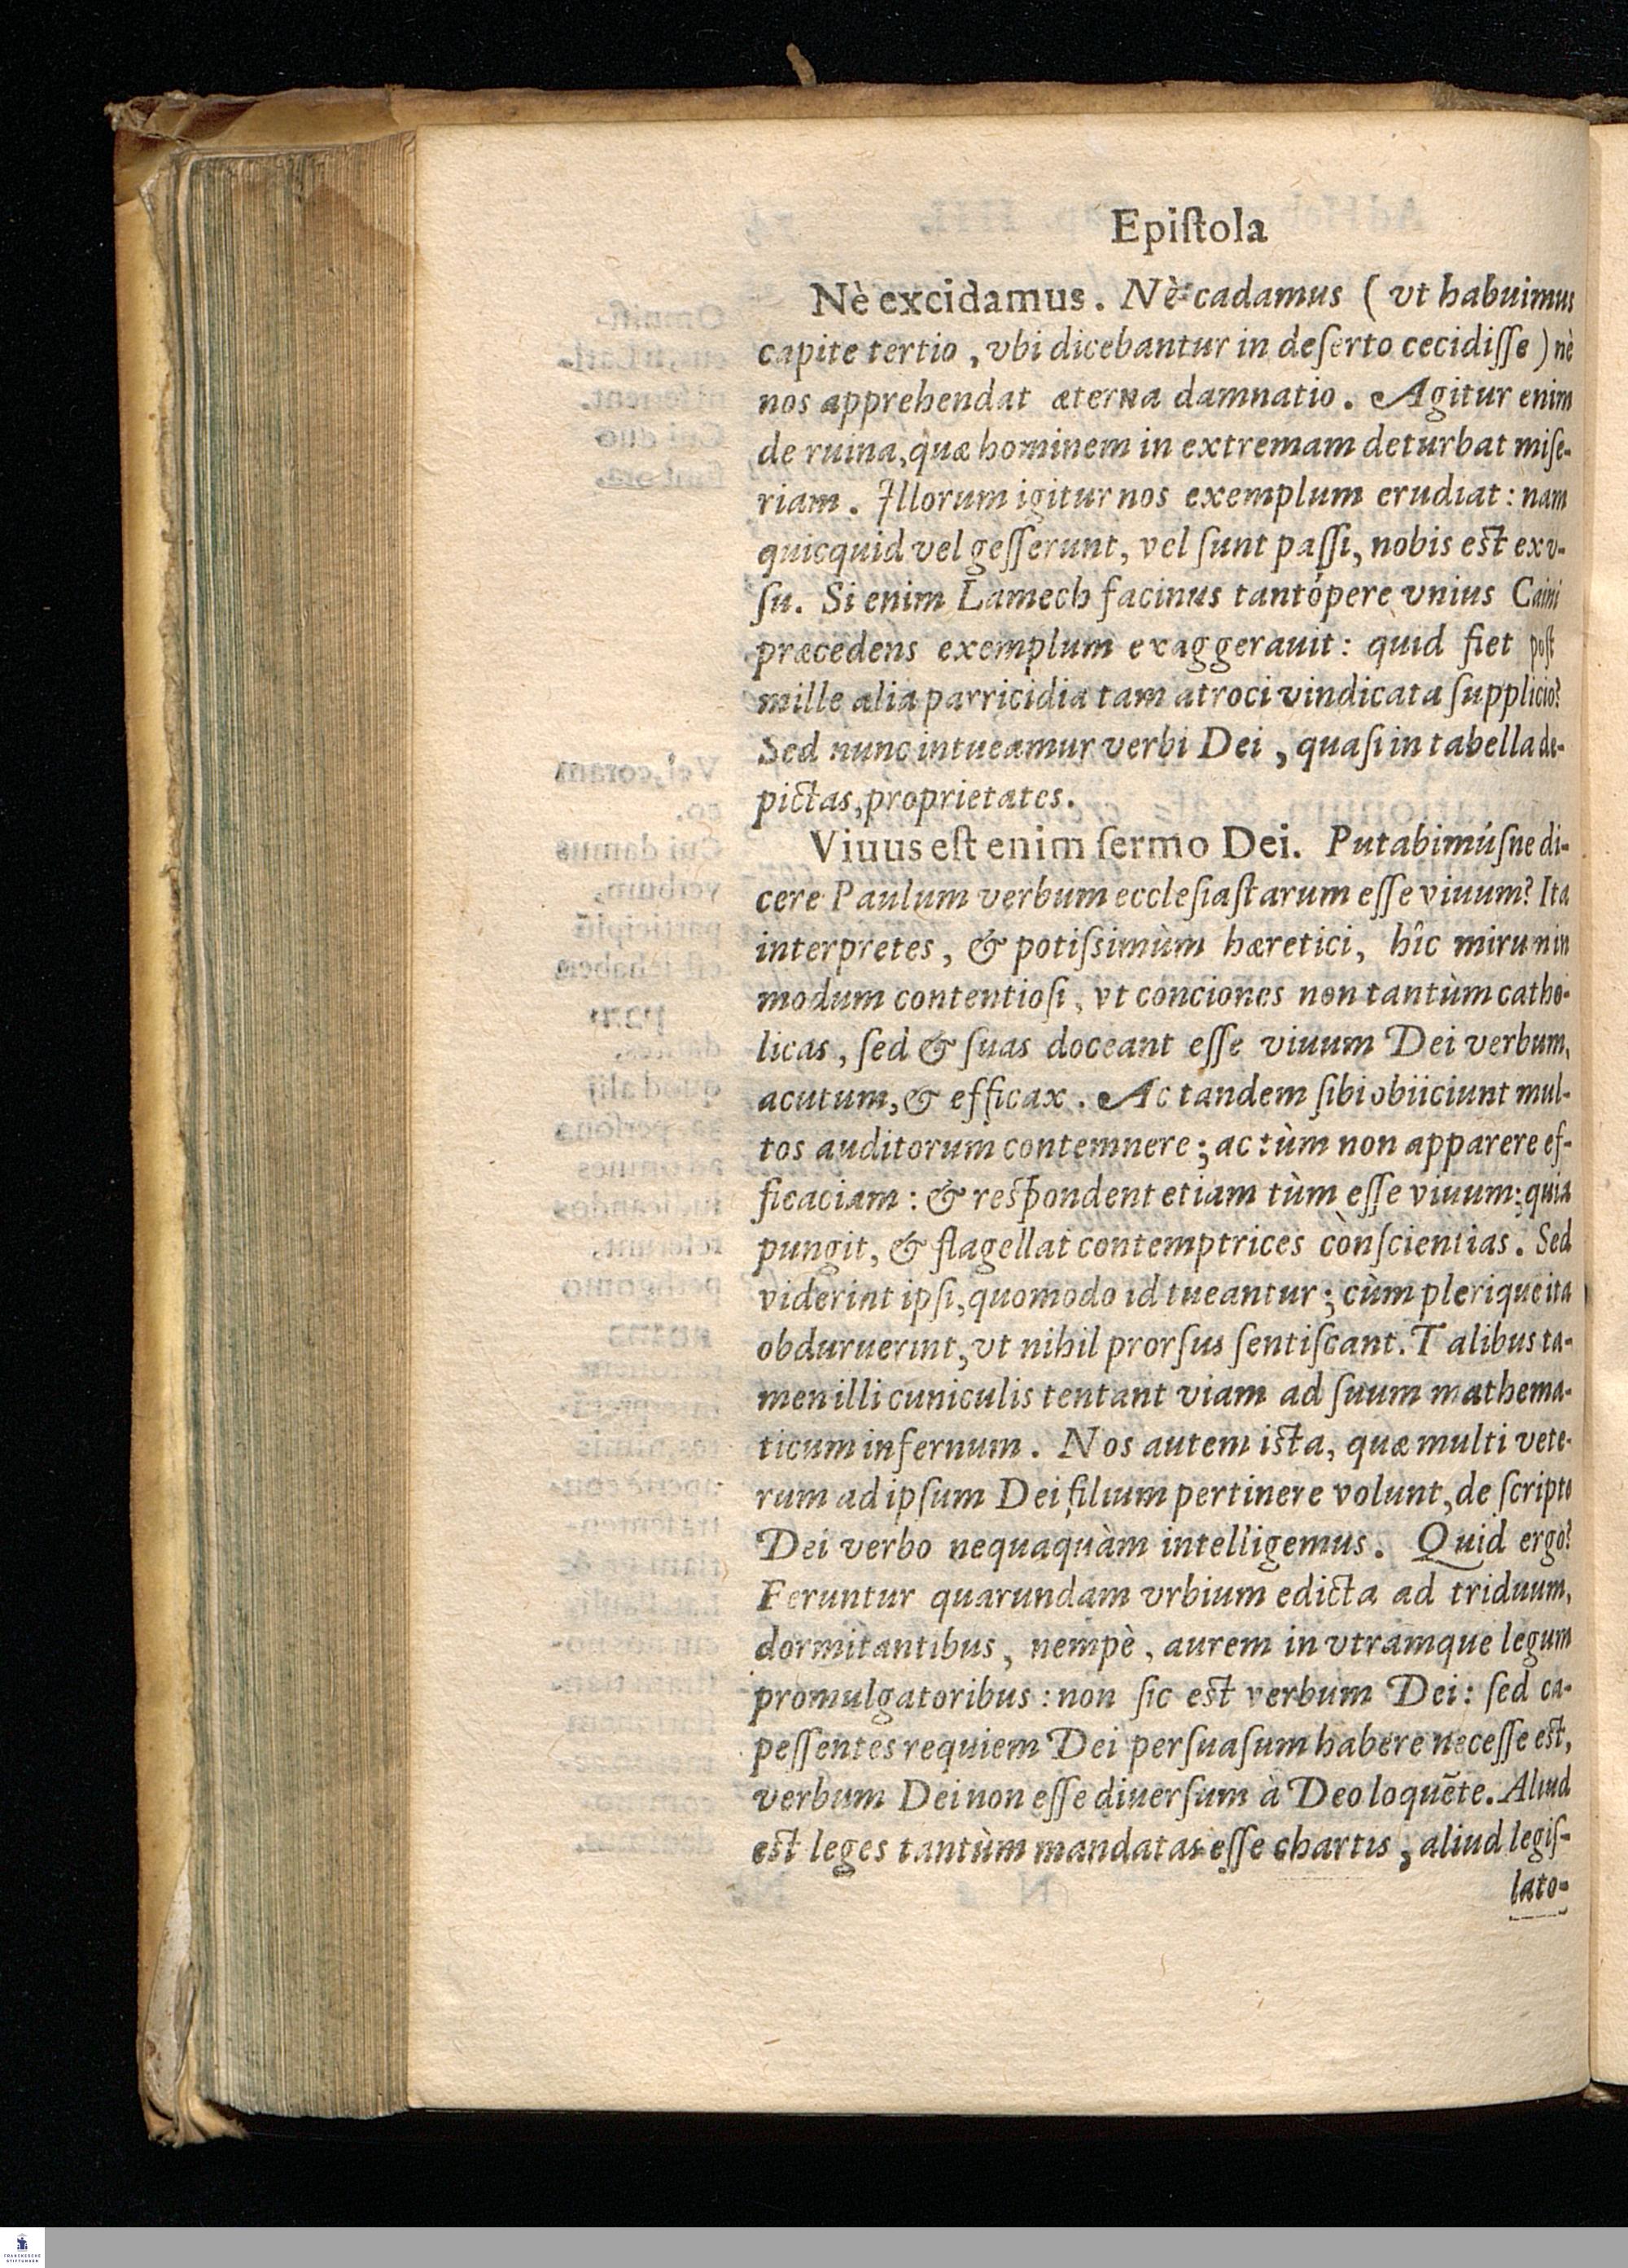 Epiſtola
Nè excidamus. Nè cadamus (vt habuimus
capite tertio, vbi dicebantur in deſerto cecidiſſe) nè
nos apprehendat æterna damnatio. Agitur enim
de ruina, quæ hominem in extremam deturbat miſe-
riam. Illorum igitur nos exemplum erudiat: nam
quicquid vel geſſerunt, vel ſunt paſſi, nobis eſt ex v-
ſu. Si enim Lamech facinus tantópere vnius Caini
præcedens exemplum exaggerauit: quid fiet poſt
mille alia parricidia tam atroci vindicata ſupplicio?
Sed nunc intueamur verbi Dei, quaſi in tabella de-
pictas, proprietates.
Viuus eſt enim ſermo Dei. Putabimúſne di-
cere Paulum verbum eccleſiaſtarum eſſe viuum? Ita
interpretes, & potiſsimùm hæretici, hîc mirum in
modum contentioſi, vt conciones non tantùm catho-
licas, ſed & ſuas doceant eſſe viuum Dei verbum,
acutum, & efficax. Ac tandem ſibi obiiciunt mul-
tos auditorum contemnere; ac tùm non apparere ef-
ficaciam: & reſpondent etiam tùm eſſe viuum: quia
pungit, & flagellat contemptrices cònſcientias. Sed
viderint ipſi, quomodo id tueantur; cùm plerique ita
obduruerint, vt nihil prorſus ſentiſcant. Talibus ta-
men illi cuniculis tentant viam ad ſuum mathema-
ticum infernum. Nos autem iſta, quæ multi vete-
rum ad ipſum Dei filium pertinere volunt, de ſcripto
Dei verbo nequaquàm intelligemus. Quid ergo?
Feruntur quarundam vrbium edicta ad triduum,
dormitantibus, nempè, aurem in vtramque legum
promulgatoribus: non ſic eſt verbum Dei: ſed ca-
peſſentes requiem Dei perſuaſum habere neceſſe eſt,
verbum Dei non eſſe diuerſum à Deo loquẽte. Aliud
eſt leges tantùm mandatas eſſe chartis, aliud legiſ-
lato-